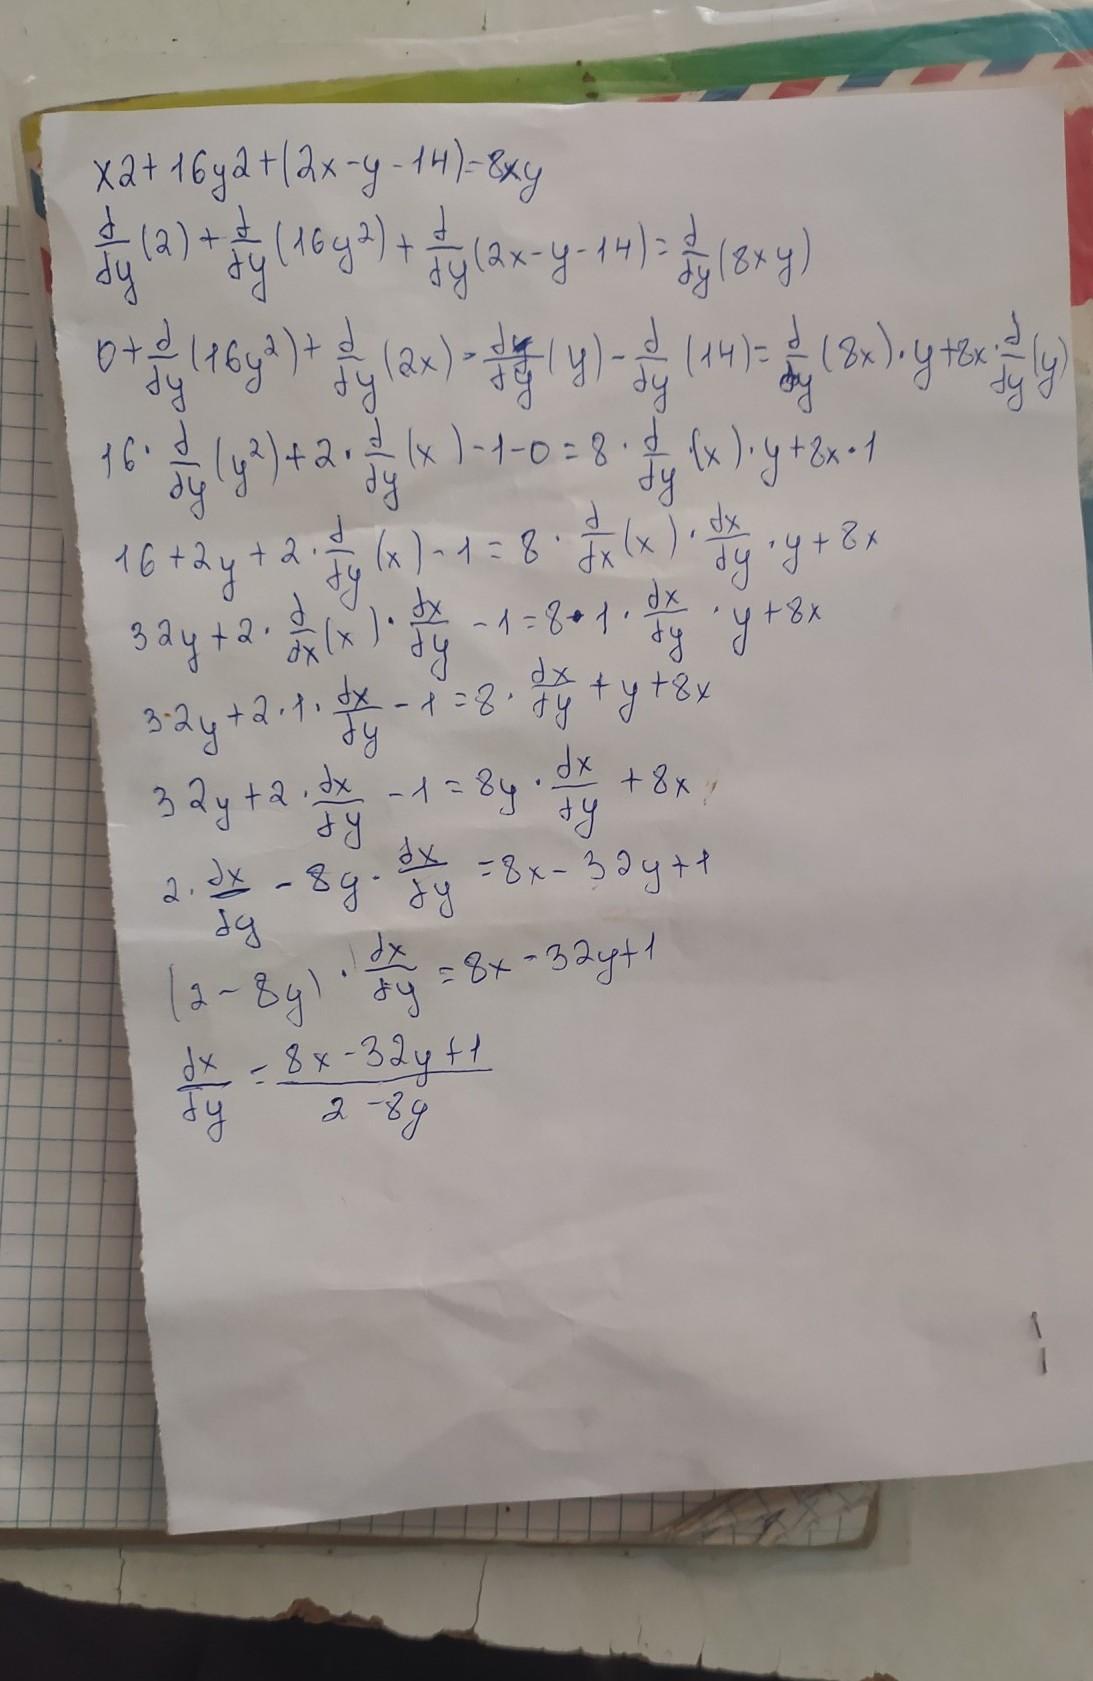 x2+16y2+(2x-y-14)=8xy
d/dy (2) + d/dy (16y²) + d/dy (2x-y-14) = d/dy (8xy)
0 + d/dy (16y²) + d/dy (2x) - dy/dy (y) - d/dy (14) = d/dy (8x)·y+8x· d/dy (y)
16· d/dy (y²) + 2· d/dy (x) -1-0 = 8· d/dy ·(x)·y+8x·1
16+2y+2· d/dy (x) -1 = 8· d/dx (x)· dx/dy ·y+8x
32y+2· d/dx (x)· dx/dy -1 = 8·1· dx/dy ·y+8x
32y+2·1· dx/dy -1 = 8· dx/dy +y+8x
32y+2· dx/dy -1 = 8y· dx/dy +8x
2· dx/dy -8y· dx/dy = 8x-32y+1
(2-8y)· dx/dy = 8x-32y+1
dx/dy = 8x-32y+1 / 2-8y